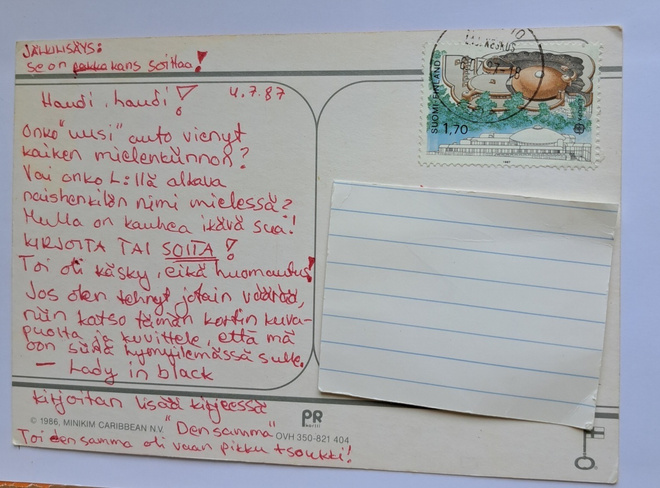 JÄLKILISÄYS:
se on pakkokans soittaa!
Haudi, haudi! 4.7.87
Onko "uusi" auto vienyt
kaiken mielenkiinnon?
Vai onko L:llä alkava
naishenkilön nimi mielessä?
Mulla on kauhea ikävä sua!
KIRJOITA TAI SOITA!
Toi oli käsky, eikä huomautus!
Jos olen tehnyt jotain väärää,
niin katso tämän kortin kuva-
puolta ja kuvittele, että mä
oon siinä hymyilemässä sulle.
— Lady in black
kirjoitan lisää kirjeessä
"Densamma"
© 1986, MINIKIM CARIBBEAN N.V.
PR
kortti
OVH 350-821 404
Toi densamma oli vaan pikku tsoukki!
SUOMI-FINLAND
1,70
EUROPA
1987
-87-18